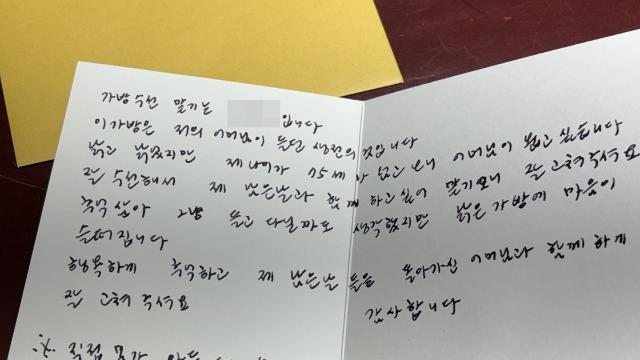 가방수선 맡기는 입니다
이가방은 저의 어머님이 들던 생전의 것입니다
낡고 낡았지만 제나이가 75세가 넘고 보니 어머님이 보고 싶습니다
잘 수선해서 제 남은날과 함께 하고 싶어 맡기오니 잘 고쳐주셔요
추억 삼아 그냥 들고 다닐까도 생각했지만 낡은 가방에 마음이
슬퍼집니다
행복하게 추억하고 제 남은날 들을 돌아가신 어머님과 함께 하게
잘 고쳐 주셔요 감사합니다
※ 직접